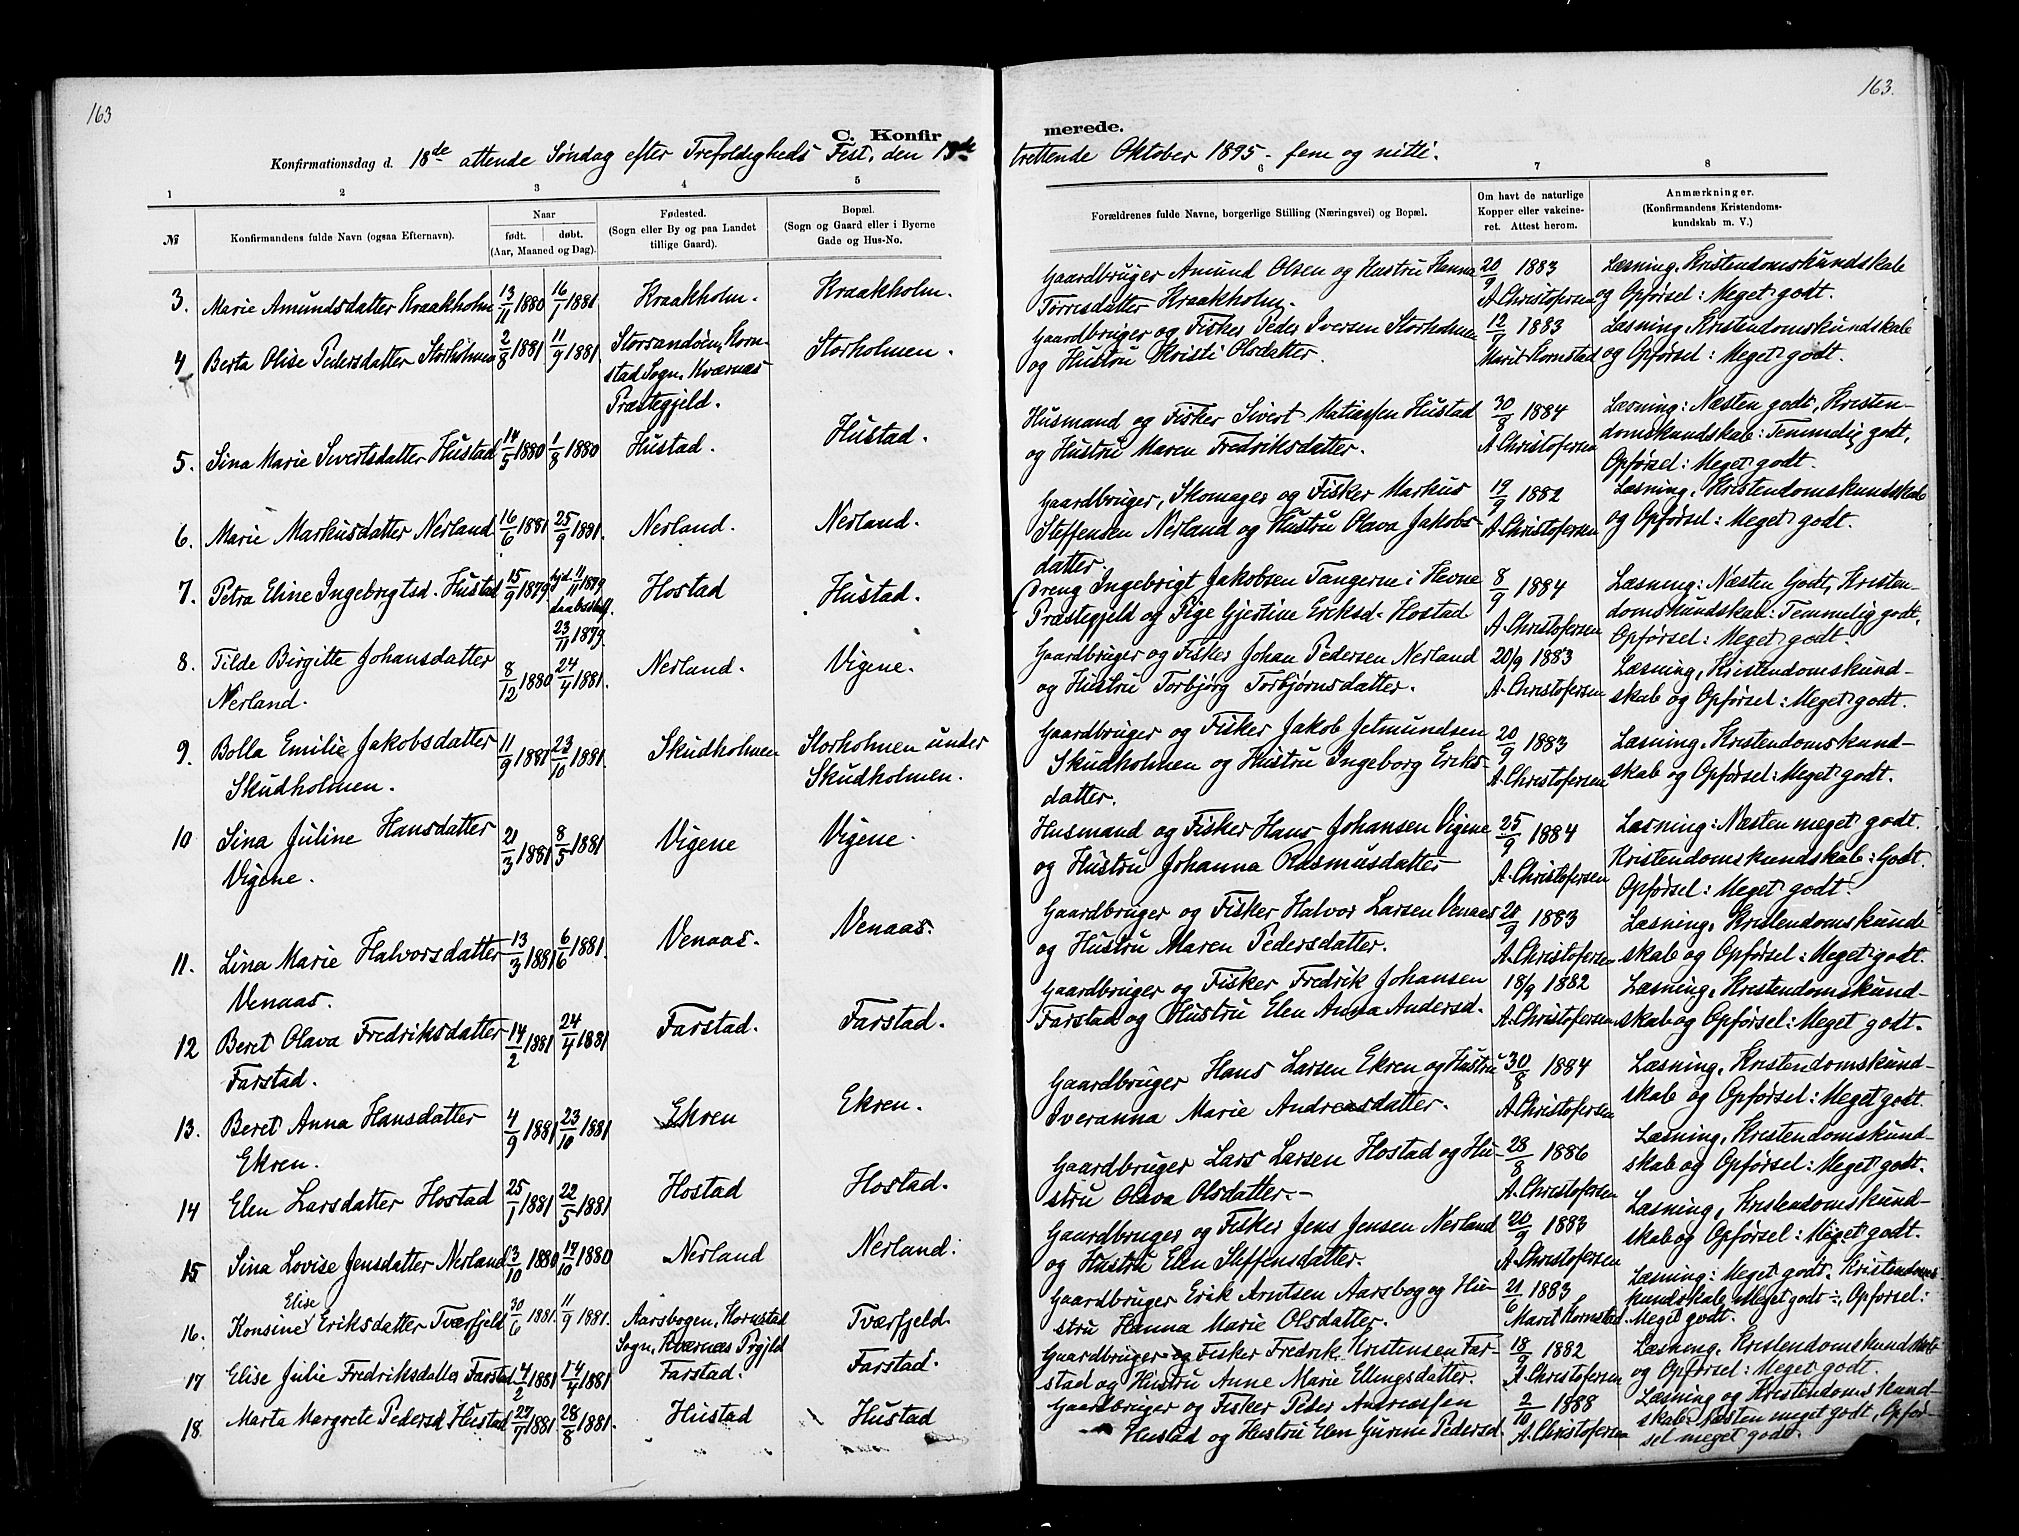 163
163.
C. Konfir
merede.
Konfirmationsdag d. 18de attende Søndag efter Trefoldigheds Fest, den 13de
trettende Oktober 1895 - fem og nitti.
1 2 3 4 5
6 7 8
№
Konfirmandens fulde Navn (ogsaa Efternavn).
Naar
født. døbt.
(Aar, Maaned og Dag).
Fødested.
(Sogn eller By og paa Landet
tillige Gaard).
Bopæl.
(Sogn og Gaard eller i Byerne
Gade og Hus-No.
Forældrenes fulde Navne, borgerlige Stilling (Næringsvei) og Bopæl.
Om havt de naturlige
Kopper eller vakcine-
ret. Attest herom.
Anmærkninger.
(Konfirmandens Kristendoms-
kundskab m. V.)
3. Marie Amundsdatter Kraakholm 13/11 1880 16/1 1881 Kraakholm. Kraakholm.
Gaardbruger Amund Olsen og Hustru Hanna 20/9 1883 Læsning, Kristendomskundskab
Torresdatter Kraakholm. A. Christofersen og Opførsel: Meget godt.
4 Berta Olise Pedersdatter Storholmen 2/8 1881 11/9 1881 Storsandøen, Korn- Storholmen.
stad Sogn, Kværnæs
Præstegjeld.
Gaardbruger og Fisker Peder Iversen Storholmen 12/9 1883 Læsning, Kristendomskundskab
og Hustru Kristi Olsdatter. Marit Kornstad og Opførsel: Meget godt.
5. Sina Marie Sivertsdatter Hustad 14/5 1880 1/8 1880 Hustad. Hustad.
Husmand og Fisker Sivert Matiessen Hustad 30/8 1884 Læsning: Næsten godt, Kristen-
og Hustru Maren Fredriksdatter. A. Christofersen domskundskab: Temmelig godt,
Opførsel: Meget godt.
6. Marie Markusdatter Nerland 16/6 1881 25/9 1881. Nerland. Nerland.
Gaardbruger, Skomager og Fisker Markus 19/9 1882 Læsning, Kristendomskundskab
Steffensen Nerland og Hustru Olava Jakobs- A. Christofersen og Opførsel: Meget godt.
datter.
7. Petra Eline Ingebrigtsd. Hustad 15/9 1879 hjd. 11/11 1879 Hostad Hustad.
23/11 1879.
Dreng Ingebrigt Jakobsen Tangerne i Hevne 8/9 1884 Læsning: Næsten Godt, Kristen-
Præstegjeld og Pige Gjertine Eriksd. Hostad A. Christofersen domskundskab: Temmelig godt,
Opførsel: Meget godt.
8. Tilde Birgitte Johansdatter 8/12 1880 24/4 1881. Nerland. Vigene.
Nerland.
Gaardbruger og Fisker Johan Pedersen Nerland 20/9 1883 Læsning, Kristendomskund-
og Hustru Torbjørg Torbjørnsdatter. A. Christofersen skab og Opførsel: Meget godt.
9. Bolla Emilie Jakobsdatter 11/9 1881 23/10 1881. Skudholmen Storholmen under
Skudholmen. Skudholmen.
Gaardbruger og Fisker Jakob Jetmundsen 20/9 1883 Læsning, Kristendomskund-
Skudholmen og Hustru Ingeborg Eriks- A. Christofersen skab og Opførsel: Meget godt.
datter.
10 Sina Juline Hansdatter 21/3 1881 8/5 1881 Vigene Vigene.
Vigene.
Husmand og Fisker Hans Johansen Vigene 25/9 1884 Læsning: Næsten meget godt.
og Hustru Johanna Rasmusdatter A. Christofersen Kristendomskundskab: Godt.
Opførsel: Meget godt.
11. Lina Marie Halvorsdatter 13/3 1881 6/6 1881. Venaas. Venaas.
Venaas.
Gaardbruger og Fisker Halvor Larsen Venaas 20/9 1883 Læsning, Kristendomskund-
og Hustru Maren Pedersdatter. A. Christofersen skab og Opførsel: Meget godt.
12 Beret Olava Fredriksdatter 14/2 1881 24/4 1881 Farstad. Farstad.
Farstad.
Gaardbruger og Fisker Fredrik Johansen 18/9 1882 Læsning, Kristendomskund-
Farstad og Hustru Elen Anna Andersd. A. Christofersen skab og Opførsel: Meget godt.
13. Beret Anna Hansdatter 4/9 1881 23/10 1881 Ekren Ekren.
Ekren.
Gaardbruger Hans Larsen Ekren og Hustru 30/8 1884 Læsning, Kristendomskund-
Iveranna Marie Andreasdatter. A. Christofersen skab og Opførsel: Meget godt.
14 Elen Larsdatter Hostad 25/1 1881 22/5 1881 Hostad Hostad.
Gaardbruger Lars Larsen Hostad og Hu- 28/8 1886 Læsning, Kristendomskund-
stru Olava Olsdatter. A. Christofersen skab og Opførsel: Meget godt.
15 Sina Lovise Jensdatter Nerland 3/10 1880 17/10 1880 Nerland Nerland.
Gaardbruger og Fisker Jens Jensen Nerland 20/9 1883 Læsning, Kristendomskund-
og Hustru Elen Steffensdatter. A. Christofersen skab og Opførsel: Meget godt.
16. Konsine Elise Eriksdatter Tværfjeld 30/6 1881 11/9 1881. Aarsbogen, Kornstad Tværfjeld.
Sogn, Kværnæs Prgjld
Gaardbruger Erik Arntsen Aarsbog og Hu- 21/6 1883 Læsning: Meget godt, Kristendoms
stru Hanna Marie Olsdatter. Marit Kornstad. kundskab, Meget godt ÷, Opførsel:
Meget godt.
17 Elise Julie Fredriksdatter Farstad 4/2 1881 14/4 1881 Farstad. Farstad.
Gaardbruger og Fisker Fredrik Kristensen Far- 18/9 1882 Læsning, Kristendomskundskab
stad og Hustru Anne Marie Ellingsdatter. A. Christofersen og Opførsel: Meget godt.
18. Marta Margrete Pedersd. Hustad 27/7 1881 28/8 1881. Hustad Hustad
Gaardbruger og Fisker Peder Andreassen 2/10 1888 Læsning og Kristendomskund-
Hustad og Hustru Elen Gurine Pedersd. A. Christofersen skab: Næsten meget godt, Opfør-
sel meget godt.